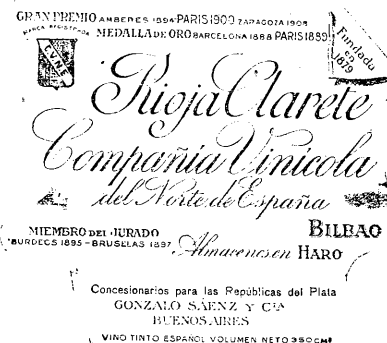 GRAN PREMIO AMBERES 1894-PARIS 1900 ZARAGOZA 1908
MARCA REGISTRADA
MEDALLA DE ORO BARCELONA 1888 PARIS 1889
Fundada
en
1879
C.V.N.E
Rioja Clarete
Compañia Vinicola
del Norte de España
BILBAO
MIEMBRO DEL JURADO
BURDEOS 1895-BRUSELAS 1897
Almacenes en HARO
Concesionarios para las Repúblicas del Plata
GONZALO SÁENZ Y CIA
BUENOS AIRES
VINO TINTO ESPAÑOL VOLUMEN NETO 350 CM³